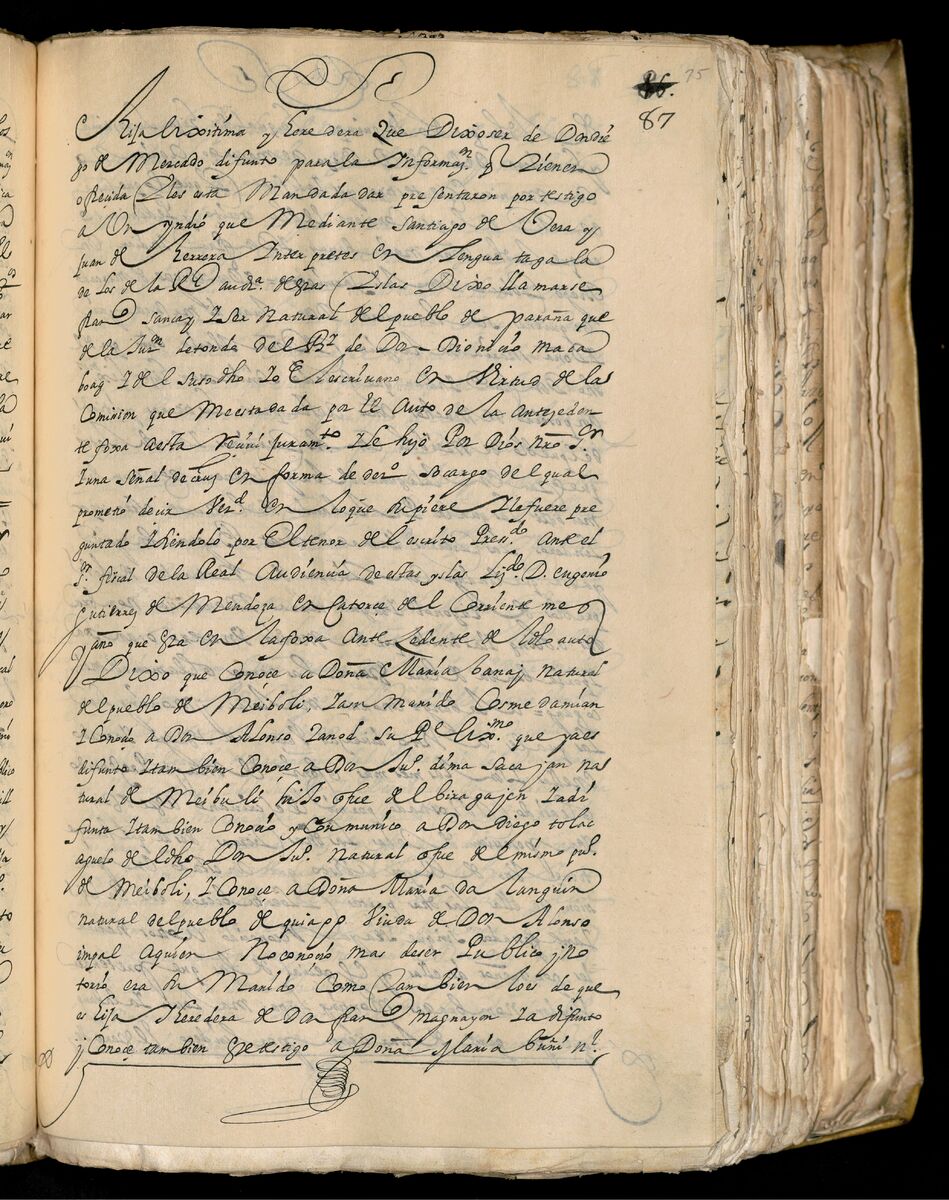 86. 75
87
Hija lixitima y heredera Que Dixo ser de Don die
go de Mercado difunto para la Informaⁿ q̃ tienen
ofrecida Y les esta Mandada dar presentaron por testigo
a Un yndio que Mediante Santiago de Vera y
Juan de Herrera Interpretes en Lengua tagala
de Los de la Rˡ audᵃ. destas Yslas Dixo llamarse
franᶜᵒ sancay Y ser Natural del pueblo de parañaque
de la Jurⁿ de tondo del Bʸ de Don Dionicio maca
boag Y del susodho Yo El escriuano en Virtud de la
Comision que Me esta dada por El Auto de la Anteçeden
te foxa desta Reçiui Juramᵗᵒ. Y le hizo Por Dios nrõ Sʳ
Y una señal de cruz en forma de derº so cargo del qual
prometio decir Verᵈ. en lo que supiere Y le fuere pre
guntado Y siendolo por El tenor del escrito Presᵈᵒ Ante el
Sʳ. fiscal de la Real Audiencia de estas yslas Liçᵈᵒ. D. eugenio
Gutierrez de Mendoza en Catorce del Corriente mes
y año que esta en la foxa Antecedente del dho auto
Dixo que Conoçe a Doña Maria banaj Natural
del pueblo de Meiboli, Y a su Marido Cosme damian
Y Conoçio a Don Alonso Yanod su Pᵉ lixᵐᵒ. que ya es
difunto Y tambien Conoçe a Don Juº. dima sacajan na
tural de Meibuli hijo q̃ fue del bizagajen Ya di
funta Y tambien Conoçio y Comunico a Don Diego tolac
aguelo del dho Don Juº. Natural q̃ fue del mismo puº.
de Meiboli, Y Conoçe a Doña Maria da languin
natural del pueblo de quiapo Viuda de Don Alonso
impal a quien No conoçio mas de ser Publico y No
torio era su Marido Como tambien lo es de que
es Hija Y heredera de Don franᶜᵒ magnayon Ya difunto
y Conoçe tambien este testigo a Doña Maria buñi nˡ.